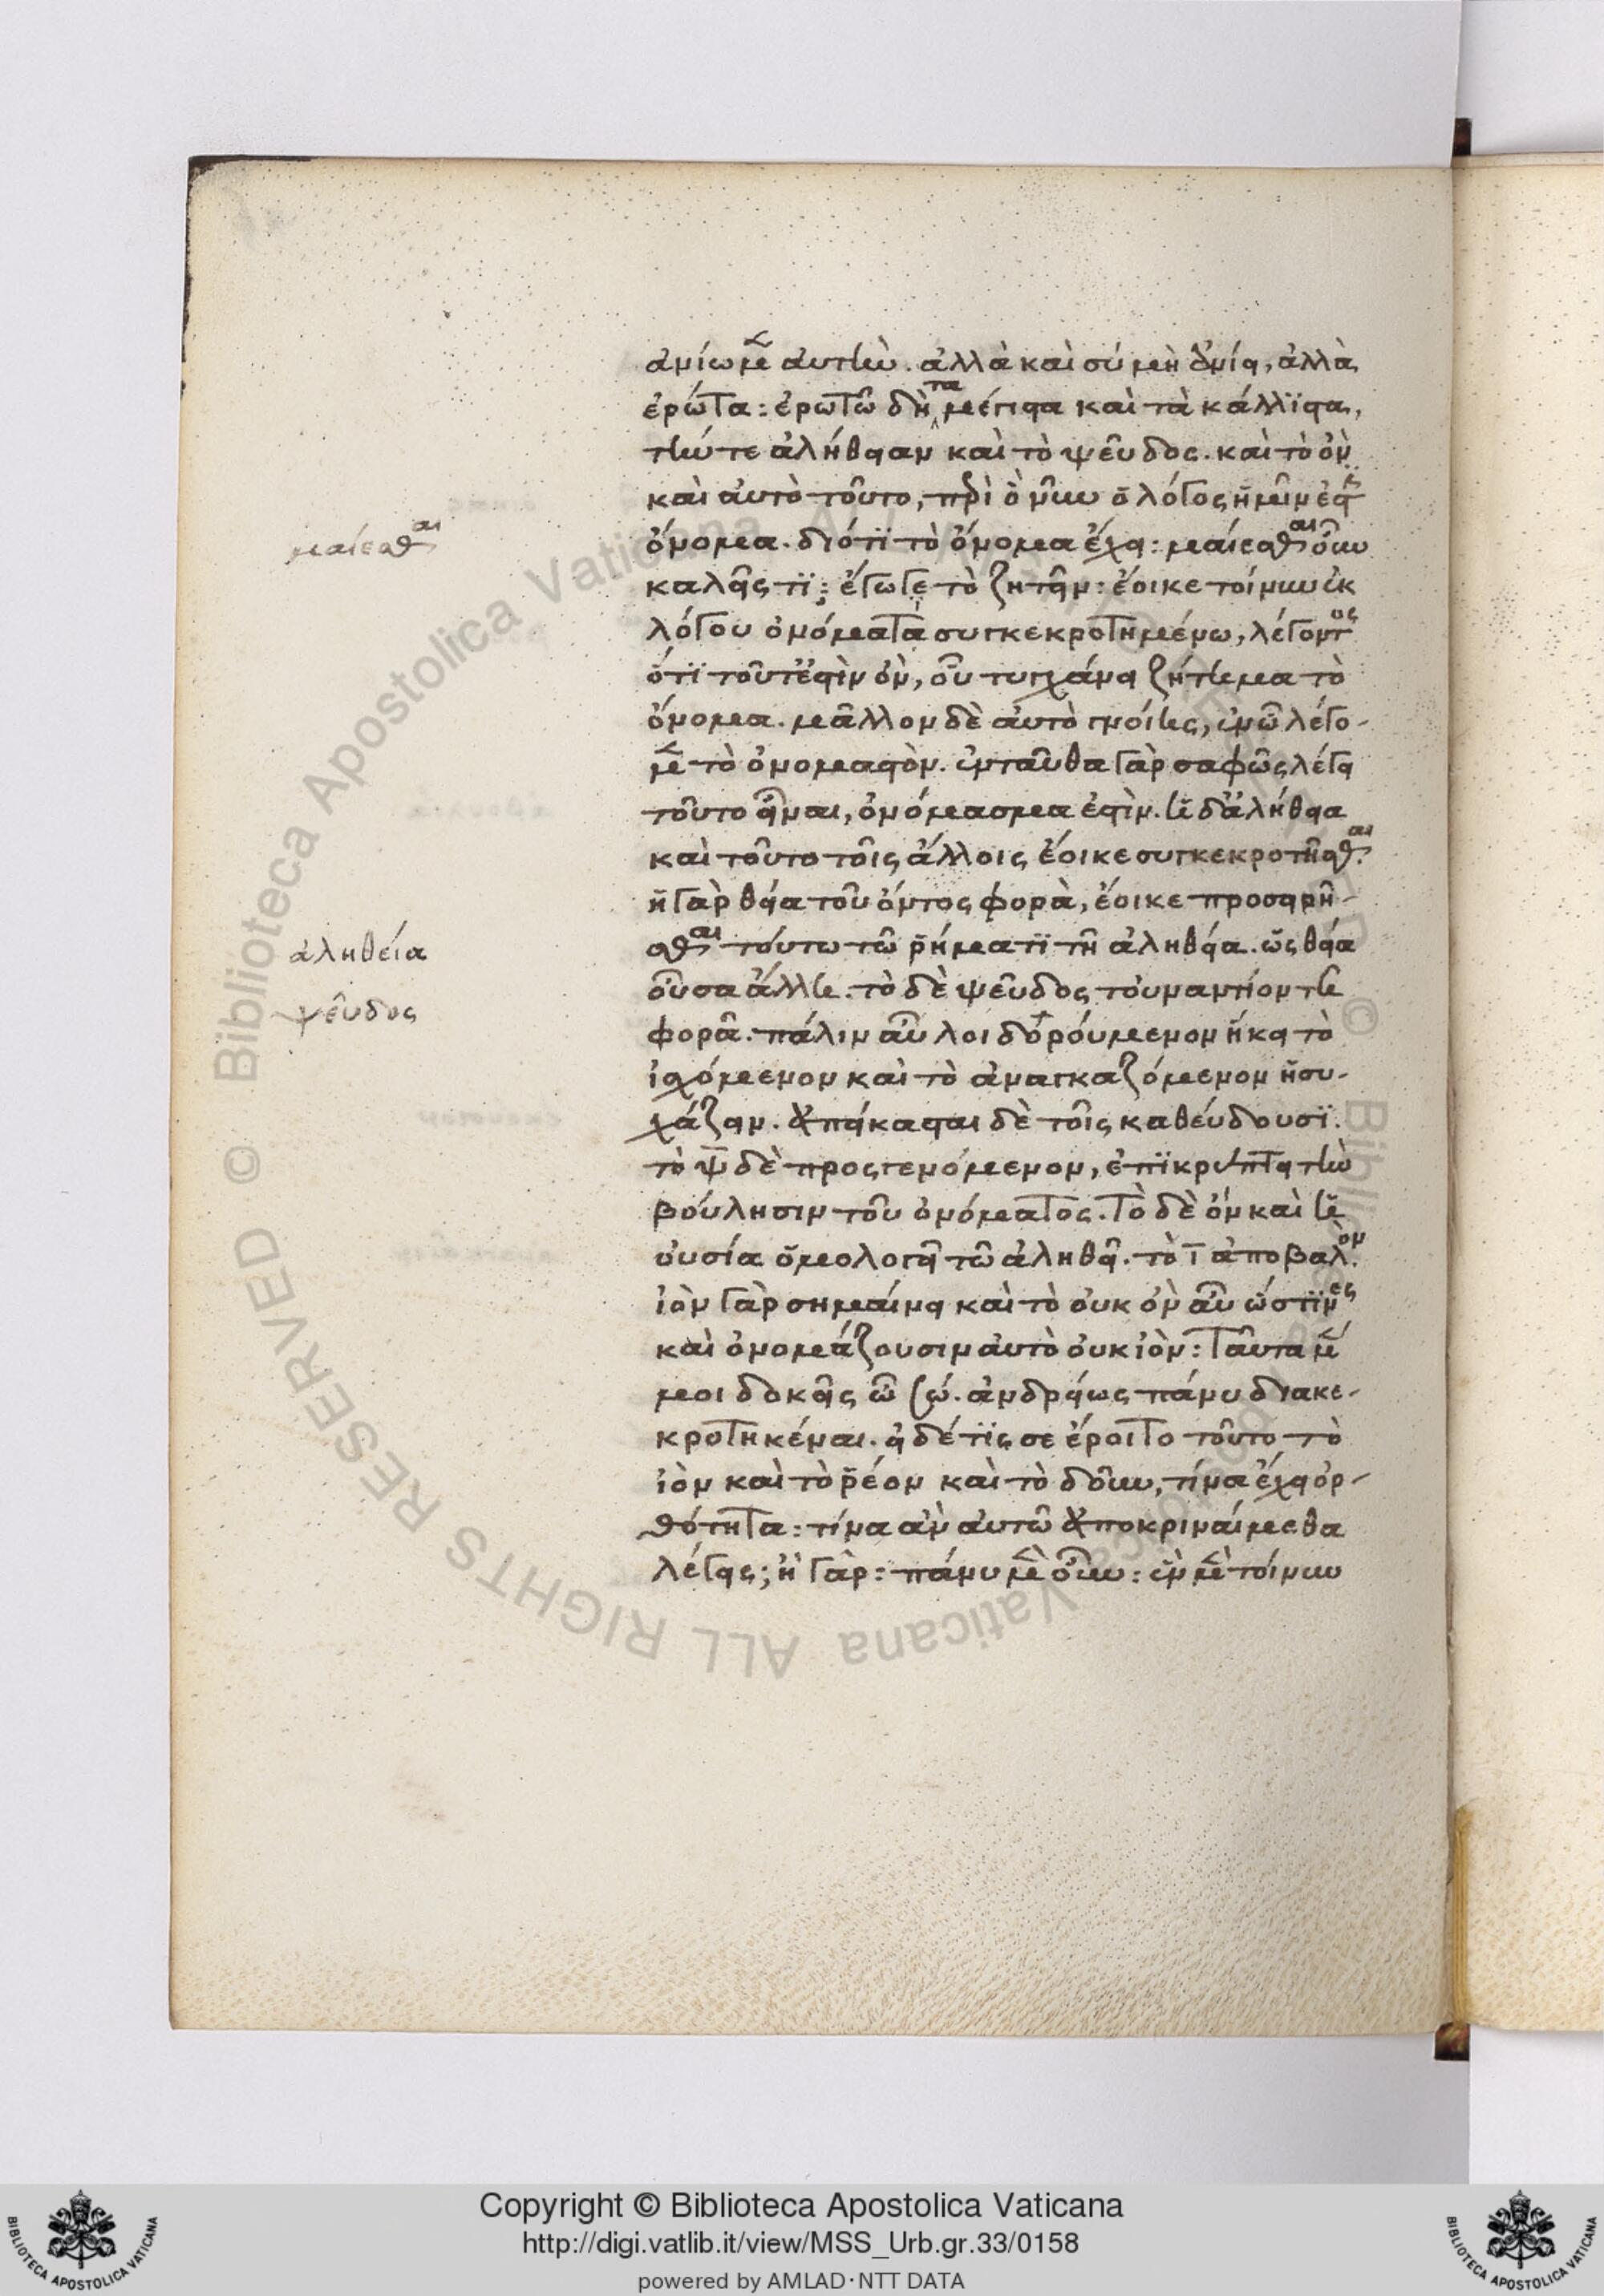 ἀνίωμεν αὐτήν. ἀλλὰ καὶ σὺ μὴ ἀνίει, ἀλλὰ
ἐρώτα: ἐρωτῶ δὴ τὰ μέγιστα καὶ τὰ κάλλιστα,
τήν τε ἀλήθειαν καὶ τὸ ψεῦδος. καὶ τὸ ὂν
καὶ αὐτὸ τοῦτο, περὶ ὃ νῦν ὁ λόγος ἡμῖν ἐστὶν
ὄνομα. διότι τὸ ὄνομα ἔχει: μαίεσθαι οὖν
μαίεσθαι
καλεῖς τι; ἔγωγε τὸ ζητεῖν: ἔοικε τοίνυν ἐκ
λόγου ὀνόματι συγκεκροτημένω, λέγοντος
ὅτι τοῦτ' ἐστὶν ὂν, οὗ τυγχάνει ζήτημα τὸ
ὄνομα. μᾶλλον δὲ αὐτὸ γνοίης, ἐν ὧ λέγο-
μεν τὸ ὀνομαστόν. ἐνταῦθα γὰρ σαφῶς λέγει
τοῦτο εἶναι, ὀνόμασμα ἐστὶν. ἡ δ' ἀλήθεια
καὶ τοῦτο τοῖς ἄλλοις ἔοικε συγκεκροτῆσθαι.
ἡ γὰρ θεία τοῦ ὄντος φορὰ, ἔοικε προσειρῆ-
σθαι τούτω τῶ ῥήματι τῆ ἀληθεία. ὡς θεία
ἀληθεία
οὖσα ἄλη. τὸ δὲ ψεῦδος τοὐναντίον τῆ
ψεῦδος
φορᾶ. πάλιν αὖ λοιδορούμενον ἥκει τὸ
ἰσχόμενον καὶ τὸ ἀναγκαζόμενον ἡσυ-
χάζειν. ἀπείκασται δὲ τοῖς καθεύδουσι.
τὸ ψ δὲ προσγενόμενον, ἐπικρύπτει τὴν
βούλησιν τοῦ ὀνόματος. τὸ δὲ ὂν καὶ ἡ
οὐσία ὁμολογεῖ τῶ ἀληθεῖ. τὸ ι ἀποβαλόν.
ἰὸν γὰρ σημαίνει καὶ τὸ οὐκ ὂν αὖ ὥς τινες
καὶ ὀνομάζουσιν αὐτὸ οὐκ ἰὸν: ταῦτα μέν
μοι δοκεῖς ὦ σώ. ἀνδρείως πάνυ διακε-
κροτηκέναι. εἰ δέ τις σε ἔροιτο τοῦτο τὸ
ἰὸν καὶ τὸ ῥέον καὶ τὸ δοῦν, τίνα ἔχει ὀρ-
θότητα: τίνα ἂν αὐτῶ ἀποκριναίμεθα
λέγεις; ἦ γὰρ: πάνυ μὲν οὖν: ἓν μὲν τοίνυν
Copyright © Biblioteca Apostolica Vaticana
http://digi.vatlib.it/view/MSS_Urb.gr.33/0158
powered by AMLAD·NTT DATA
BIBLIOTECA APOSTOLICA VATICANA
BIBLIOTECA APOSTOLICA VATICANA
© Biblioteca Apostolica Vaticana ALL RIGHTS RESERVED